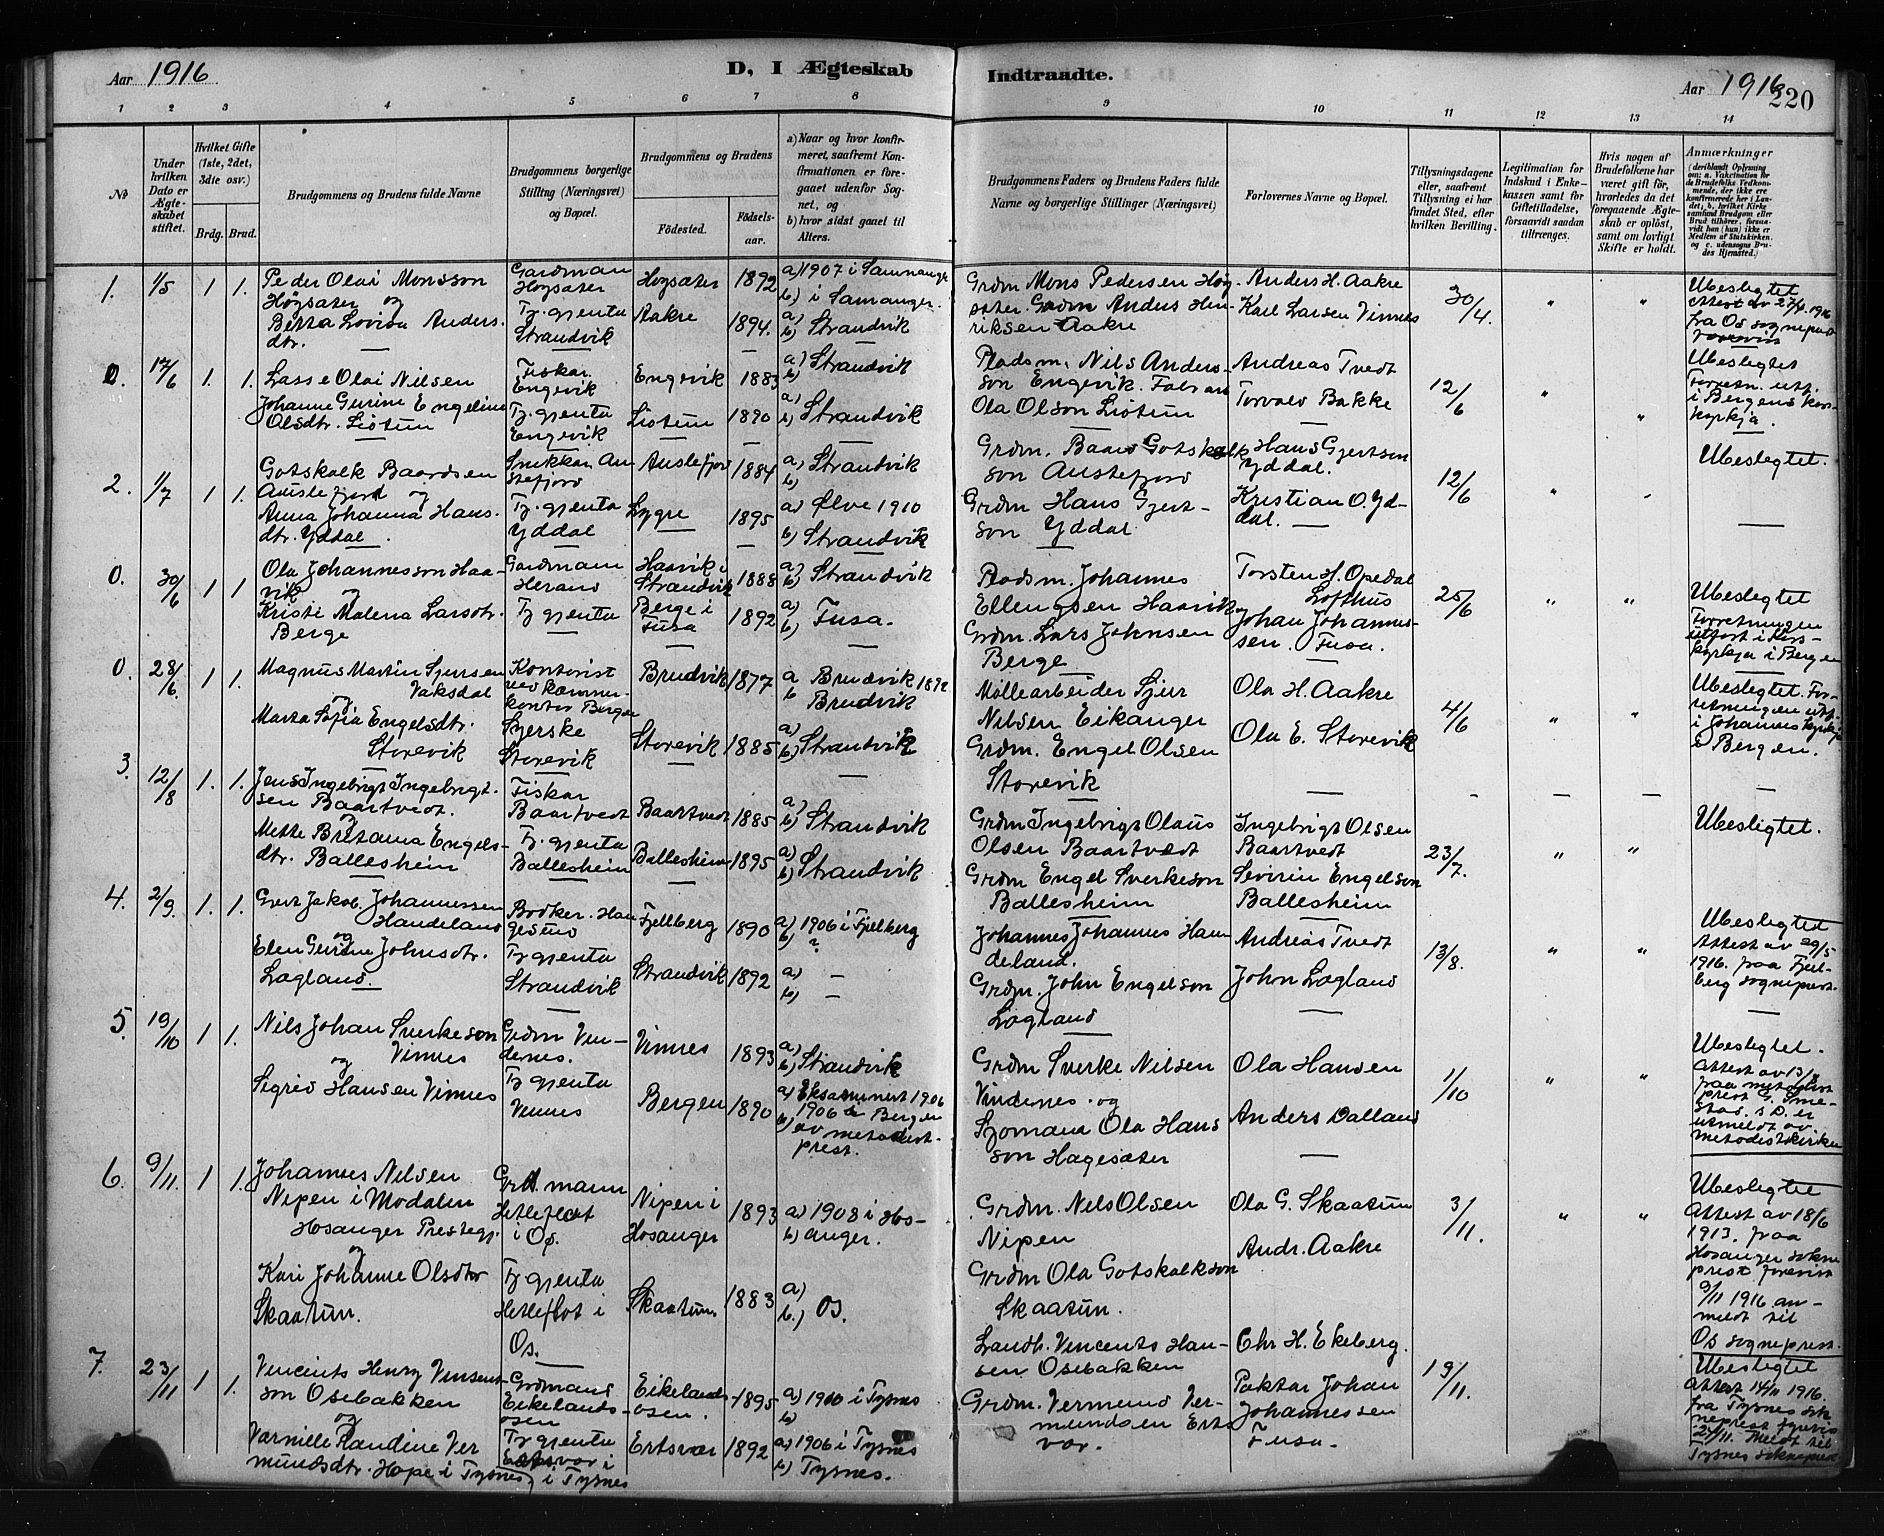 Aar 1916
D, I Ægteskab
Indtraadte.
Aar 1916
220
1 2 3 4 5 6 7 8
9 10 11 12 13 14
№
Under hvilken Dato er Ægteskabet stiftet.
Hvilket Gifte (1ste, 2det, 3die osv.)
Brdg. Brud.
Brudgommens og Brudens fulde Navne
Brudgommens borgerlige Stilling (Næringsvei) og Bopæl.
Brudgommens og Brudens
Fødested.
Fødselsaar.
a) Naar og hvor konfirmeret, saafremt Konfirmationen er foregaaet udenfor Sognet, og
b) hvor sidst gaaet til Alters.
Brudgommens Faders og Brudens Faders fulde Navne og borgerlige Stillinger (Næringsvei)
Forlovernes Navne og Bopæl.
Tillysningsdagene eller, saafremt Tillysning ei har fundet Sted, efter hvilken Bevilling.
Legitimation for Indskud i Enkekassen samt for Giftetilladelse, forsaavidt saadan tiltrænges.
Hvis nogen af Brudefolkene har været gift før, hvorledes da det foregaaende Ægteskab er opløst, samt om lovligt Skifte er holdt.
Anmærkninger
1. 1/5 1 1. Peder Olai Monsson Høysæter og Gardman Høysæter Høysæter 1892 a) 1907 i Samnanger b) i Samanger.
Berta Lovisa Andersdtr. Tj. gjenta Strandvik Aakre 1894. a) b) Strandvik
Grdm Mons Pedersen Høysæter. Grdm Anders Henriksen Aakre
Anders H. Aakre
Karl Larsen Vinnes
30/4. " "
Ubeslegtet
attest av 27/4 1916
fra Os sogneprest
0. 17/6 1. 1. Lasse Olai Nilsen Fiskar Engevik Engevik 1883 a) b) Strandvik
Johanne Gurine Engeline Olsdtr. Liøtun Tj. gjenta Engevik Liøtun 1890 a) b) Strandvik
Pladsm. Nils Andersson Engevik.
Ola Olson Liøtun
Andreas Tvedt
Torvald Bakke
12/6 " "
Ubeslegtet
Forretn. utf. i Bergens korskyrkja.
2. 1/7 1 1. Gotskalk Baardsen Austefjord og Snikkar Austefjord Austefjord 1884 a) b) Strandvik
Anna Johanna Hansdtr. Yddal Tj. gjenta Yddal Lygre 1895 a) Ølve 1910 b) Strandvik
Grdm. Baard Gotskalkson Austefjord
Grdm. Hans Gjertson Yddal
Hans Gjertson Yddal.
Kristian O. Yddal.
12/6 "
Ubeslegtet.
0. 30/6 1 1 Ola Johannesson Haavik og Gardmann Herand Haavik i Strandvik 1888 a) b) Strandvik
Kristi Malena Larsdtr. Berge Tj gjenta Berge i Fusa 1892 a) b) Fusa.
Pladsm. Johannes Ellengsen Haavik
Grdm. Lars Johnsen Berge
Torsten H. Opedal Lofthus
Johan Johannessen. Fusa.
25/6 " "
Ubeslegtet
Forretningen utført i Korskyrkja i Bergen
0. 28/6. 1 1. Magnus Martin Sjursen Vaksdal og Kontorist ved kæmnerkontor Bergen Brudvik 1877 a Brudvik 1892 b Brudvik
Marta Sofia Engelsdtr. Storevik Syerske Storevik Storevik 1885 a) b) Strandvik
Møllearbeider Sjur Nilsen Eikanger
Grdm. Engel Olsen Storevik
Ola H. Aakre
Ola E. Storevik
4/6 " "
Ubeslegtet. Forretningen utf. i Johannes kyrkja i Bergen.
3. 12/8 1. 1. Jens Ingebrigt Ingebrigtsen Baartvedt. og Fiskar Baartvedt Baartvedt 1885 a) b) Strandvik
Mette Britana Engelsdtr. Ballesheim Tj. gjenta Ballesheim Ballesheim 1895 a) b) Strandvik
Grdm Ingebrigt Olaus Olsen Baartvedt
Grdm Engel Sverkeson Ballesheim
Ingebrigt Olsen Baartvedt
Severin Engelson Ballesheim
23/7. " "
Ubeslegtet.
4. 2/9. 1. 1. Jakob Johannessen Handeland og Bødker. Haugesund Fjellberg 1890 a) 1906 i Fjelberg b) ?
Elen Gurine Johnsdtr. Løgland. Tj gjenta Strandvik Strandvik 1892 a) – b) –
Johannes Johannes Handeland.
Grdm. John Engelson Løgland
Andreas Tvedt
John Løgland
13/8. " "
Ubeslegtet
Attest av 29/5 1916. fraa Fjelberg sogneprest.
5 19/10 1 1. Nils Johan Sverkeson Vinnes og Grdm Vindenes. Vinnes 1893 a) b) Strandvik
Sigrid Hansen Vinnes Tj gjenta Vinnes Bergen 1890 a) Eksaminert 1906 1906 Bergen b) av metodistprest.
Grdm Sverke Nilsen Vindenes. og
Sjømann Ola Hansson Hagesæter
Ola Hansen
Anders Dalland
1/10 " "
Ubeslegtet.
Attest av fraa metodistprest G. Smestad. s.D. er utmeldt av metodistkirken
6. 9/11. 1 1. Johannes Nilsen Nipen i Modalen Hosanger Prestegj. og Grd. mann Hetleflot i Os. Nipen i Hosanger 1893 a) 1908 i Hosanger. b)
Kari Johanne Olsdtr Skaatun. Tj gjenta Hetleflot i Os. Skaatun 1883 a) b.) Os.
Grdm. Nils Olsen Nipen
Grdm Ola Gotskalkson Skaatun.
Ola G. Skaatun
Andr. Aakre
3/11. " "
Ubeslegtet
Attest av 18/6 1913. fraa Hosanger sokneprest forevist 9/11 1916 anmeldt til Os sogneprest.
7. 23/11 1 1. Vincents Henry Vinsentson Osebakken og Grdmand Eikelandsosen Eikelandsosen. 1895 a) 1910 i Tysnes b)
Varnille Randine Vermundsdtr. Hope i Tysnes Tj gjenta Ertsvor i i Tysnes Ertsvor 1892 a) 1906 i Tysnes b) Tysnes.
Landh. Vincents Hansen Osebakken
Grdm. Vermund Vermundsen Ertsvor.
Chr H. Ekeberg.
Faktor Johan Johannessen Fusa.
19/11.
Ubeslegtet
Attest 14/11 1916. fra Tysnes sokneprest forevist 24/11. Meldt til Tysnes sokneprest